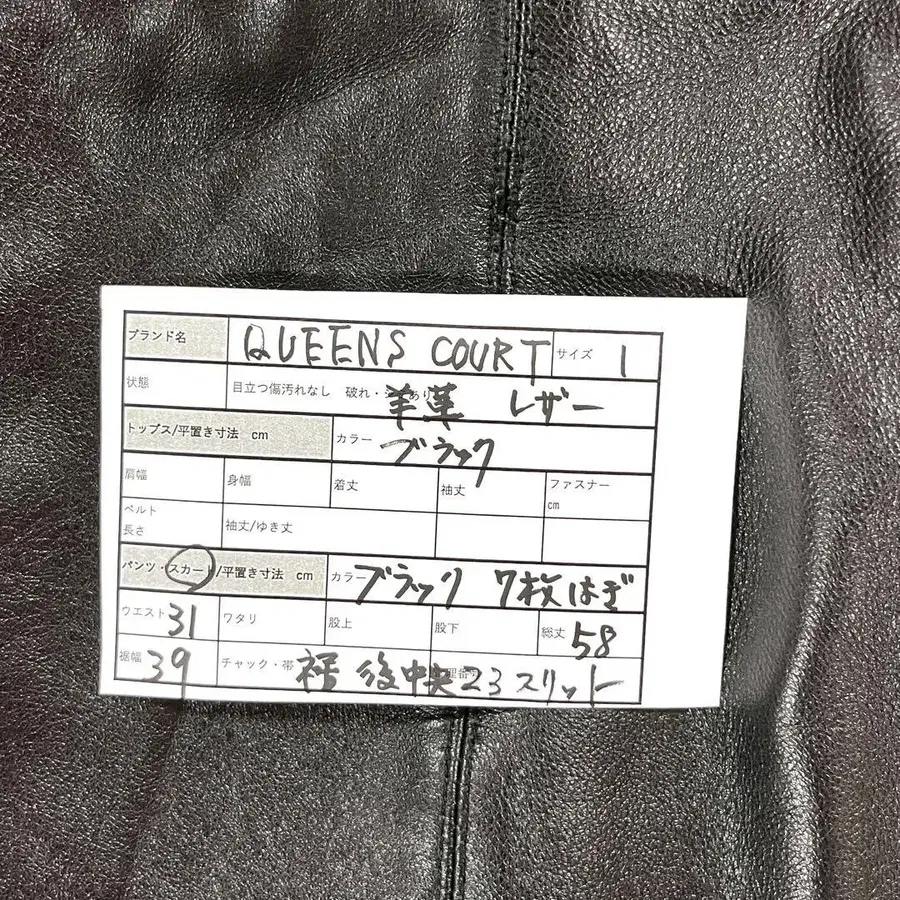 ブランド名 QUEENS COURT サイズ 1
状態 目立つ傷汚れなし 破れ・ あり 羊革 レザー
トップス/平置き寸法 cm カラー ブラック
肩幅 身幅 着丈 袖丈 ファスナー cm
ベルト長さ 袖丈/ゆき丈
パンツ・スカート/平置き寸法 cm カラー ブラック 7枚はぎ
ウエスト 31 ワタリ 股上 股下 総丈 58
裾幅 39 チャック・帯 裾 後中央23スリット